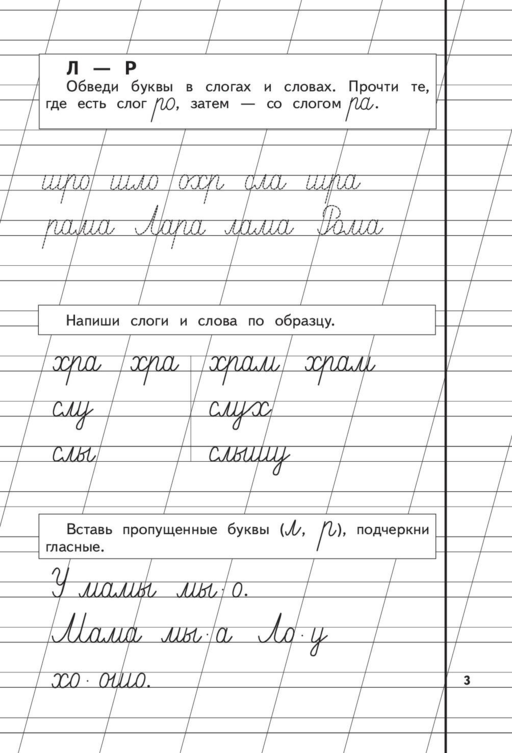 Л — Р
Обведи буквы в слогах и словах. Прочти те,
где есть слог ро, затем — со слогом ра.
шро шло охр ола шра
рама Лара лама Рома
Напиши слоги и слова по образцу.
хра хра храм храм
слу слух
слы слышу
Вставь пропущенные буквы (л, р), подчеркни
гласные.
У мамы мы·о.
Мама мы·а Ло·у
хо·ошо.
3